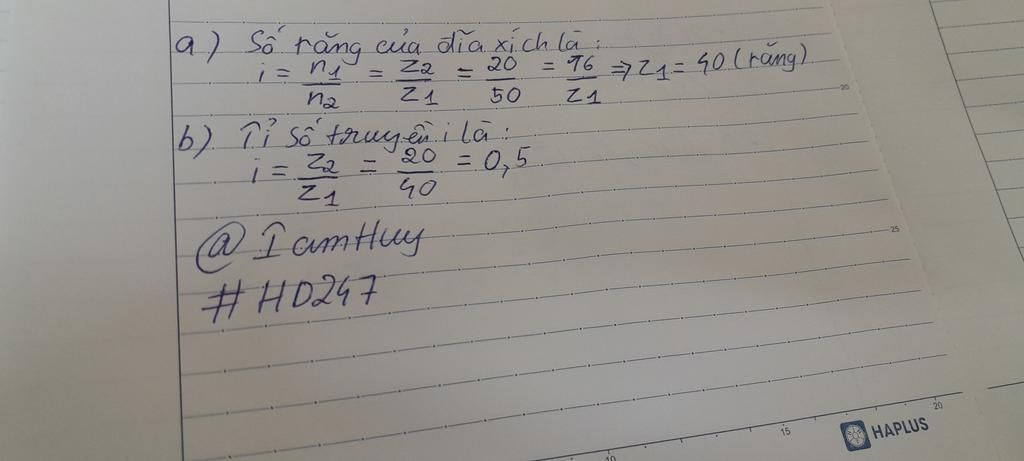 a) Số răng của đĩa xích là:
i = n1/n2 = Z2/Z1 = 20/50 = 16/Z1 ⇒ Z1 = 40 (răng)
b) Tỉ số truyền i là:
i = Z2/Z1 = 20/40 = 0,5
@IamHuy
#HD247
20
25
10 15 20
HAPLUS